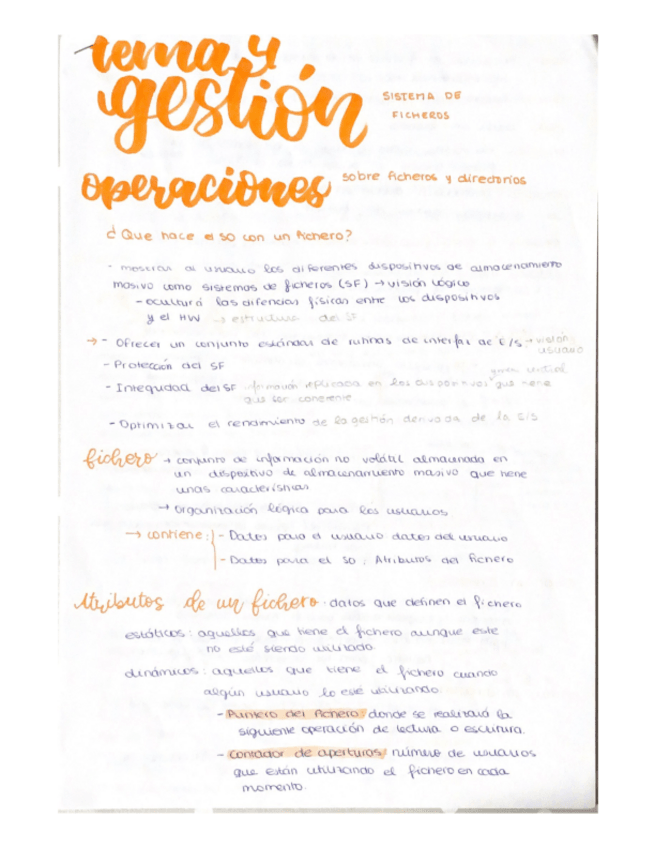 tema 4
gestión SISTEMA DE
FICHEROS
operaciones sobre ficheros y directorios
¿Que hace el SO con un fichero?
- mostrar al usuario los diferentes dispositivos de almacenamiento
masivo como sistemas de ficheros (SF) → visión lógica
- ocultará las difencias físicas entre los dispositivos
y el HW → estructura del SF
→ - Ofrecer un conjunto estándar de rutinas de interfaz de E/S → visión
usuario
- Protección del SF
- Integridad del SF información replicada en los dispositivos que tiene
que ser coherente
- Optimizar el rendimiento de la gestión derivada de la E/S
fichero → conjunto de información no volátil almacenada en
un dispositivo de almacenamiento masivo que tiene
unas características
→ organización lógica para los usuarios
→ contiene: - Datos para el usuario datos del usuario
- Datos para el SO: Atributos del fichero
Atributos de un fichero: datos que definen el fichero
estáticos: aquellos que tiene el fichero aunque este
no esté siendo utilizado
dinámicos: aquellos que tiene el fichero cuando
algún usuario lo esté utilizando:
- Puntero del fichero: donde se realizará la
siguiente operación de lectura o escritura.
- Contador de aperturas: número de usuarios
que están utilizando el fichero en cada
momento.